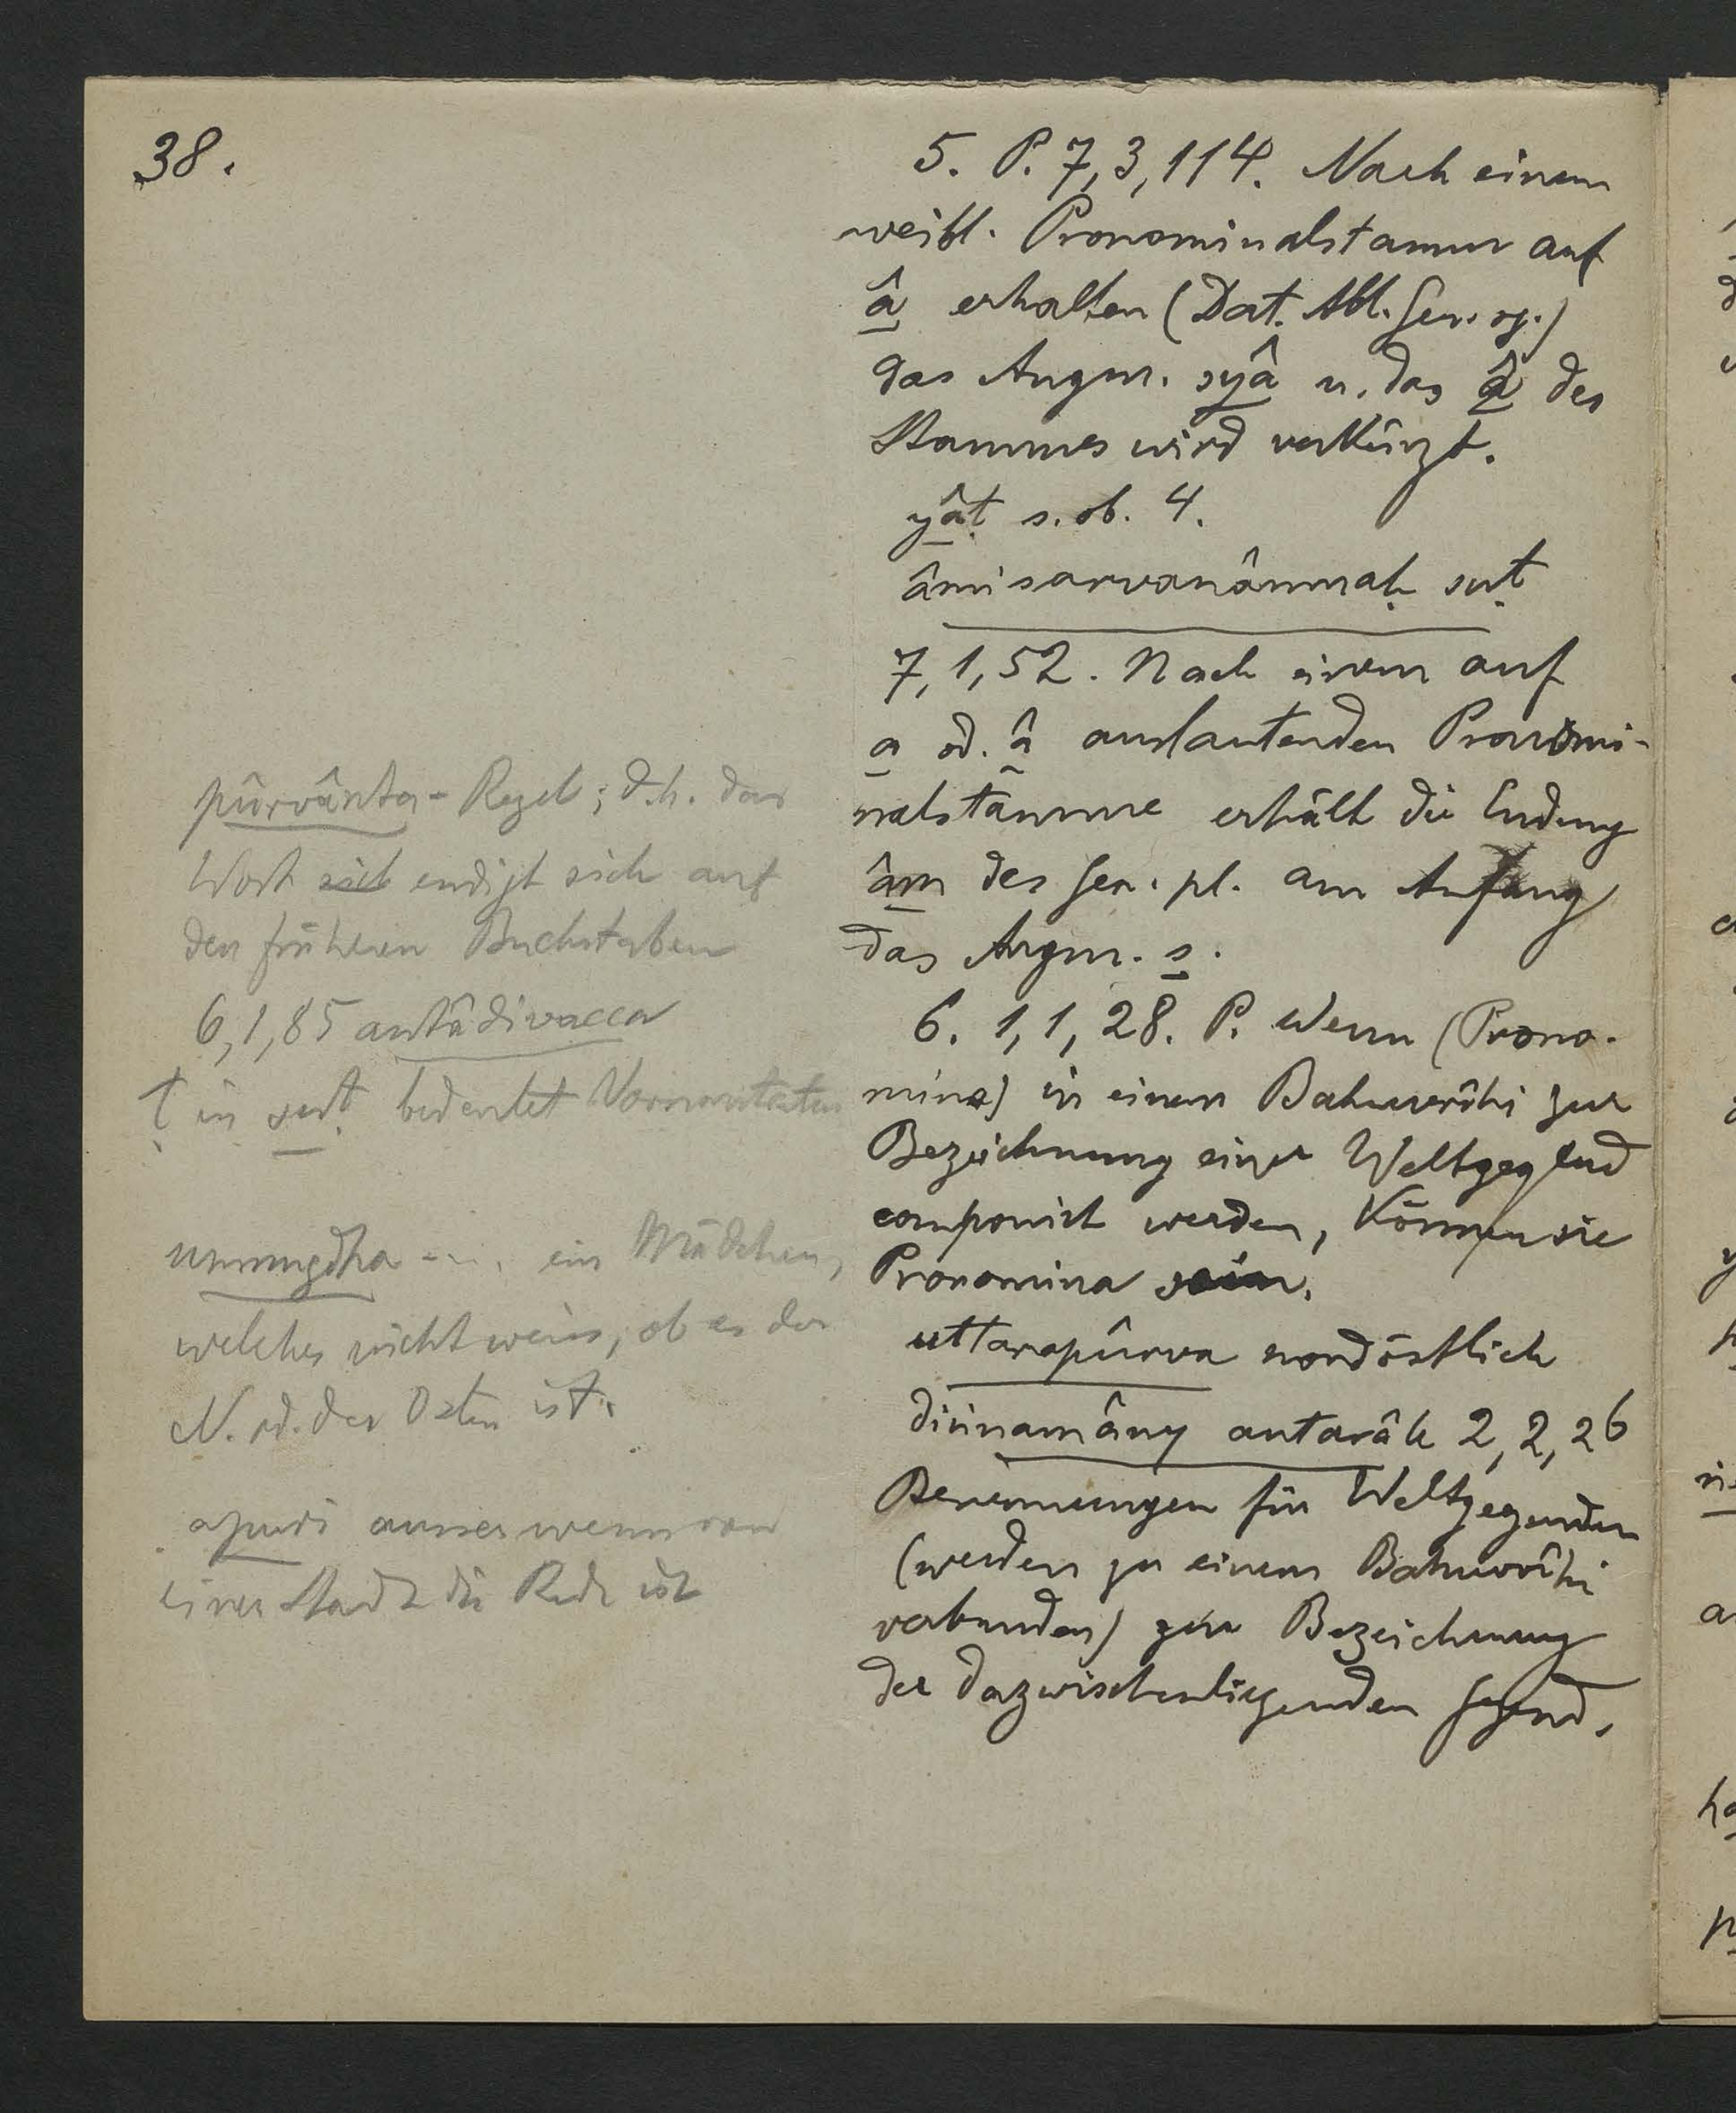 38.
5. P. 7,3,114. Nach einem
weibl. Pronominalstamm auf
â erhalten (Dat. Abl. Gen. sg.)
das Augm. syâ u. das â des
Stammes wird verkürzt.
yâṭ s. ob. 4.
âmi sarvanâmnaḥ suṭ
7,1,52. Nach einem auf
a od. â auslautenden Pronomi-
nalstamme erhält die Endung
âm des Gen. pl. am Anfang
das Augm. s.
6. 1,1,28. P. Wenn (Prono-
mina) in einem Bahuvrîhi zur
Bezeichnung einer Weltgegend
componirt werden, können sie
Pronomina sein.
uttarapûrva nordöstlich
diṅnamâny antarâle 2,2,26
Benennungen für Weltgegenden
(werden zu einem Bahuvrîhi
verbunden) zur Bezeichnung
der dazwischenliegenden Gegend.
pûrvânta-Regel; d.h. das
Wort sich endigt sich auf
den früheren Buchstaben
6,1,85 antâdivacca
ṭ in suṭ bedeutet
unmugdha - ... ein Mädchen,
welches nicht weiss, ob es der
N. od. der Osten ist.
apuri ausser wenn von
einer Stadt die Rede ist